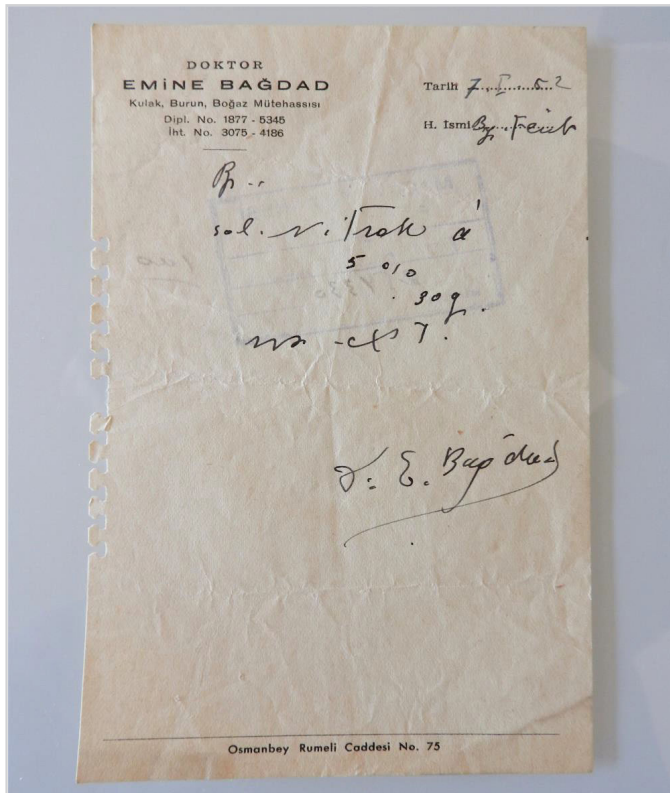 DOKTOR
EMİNE BAĞDAD
Kulak, Burun, Boğaz Mütehassısı
Dipl. No. 1877 - 5345
İht. No. 3075 - 4186
Tarih 7.I.52
H. İsmi By.
sol.
5 %
30 g.
E. Bağdad
Osmanbey Rumeli Caddesi No. 75